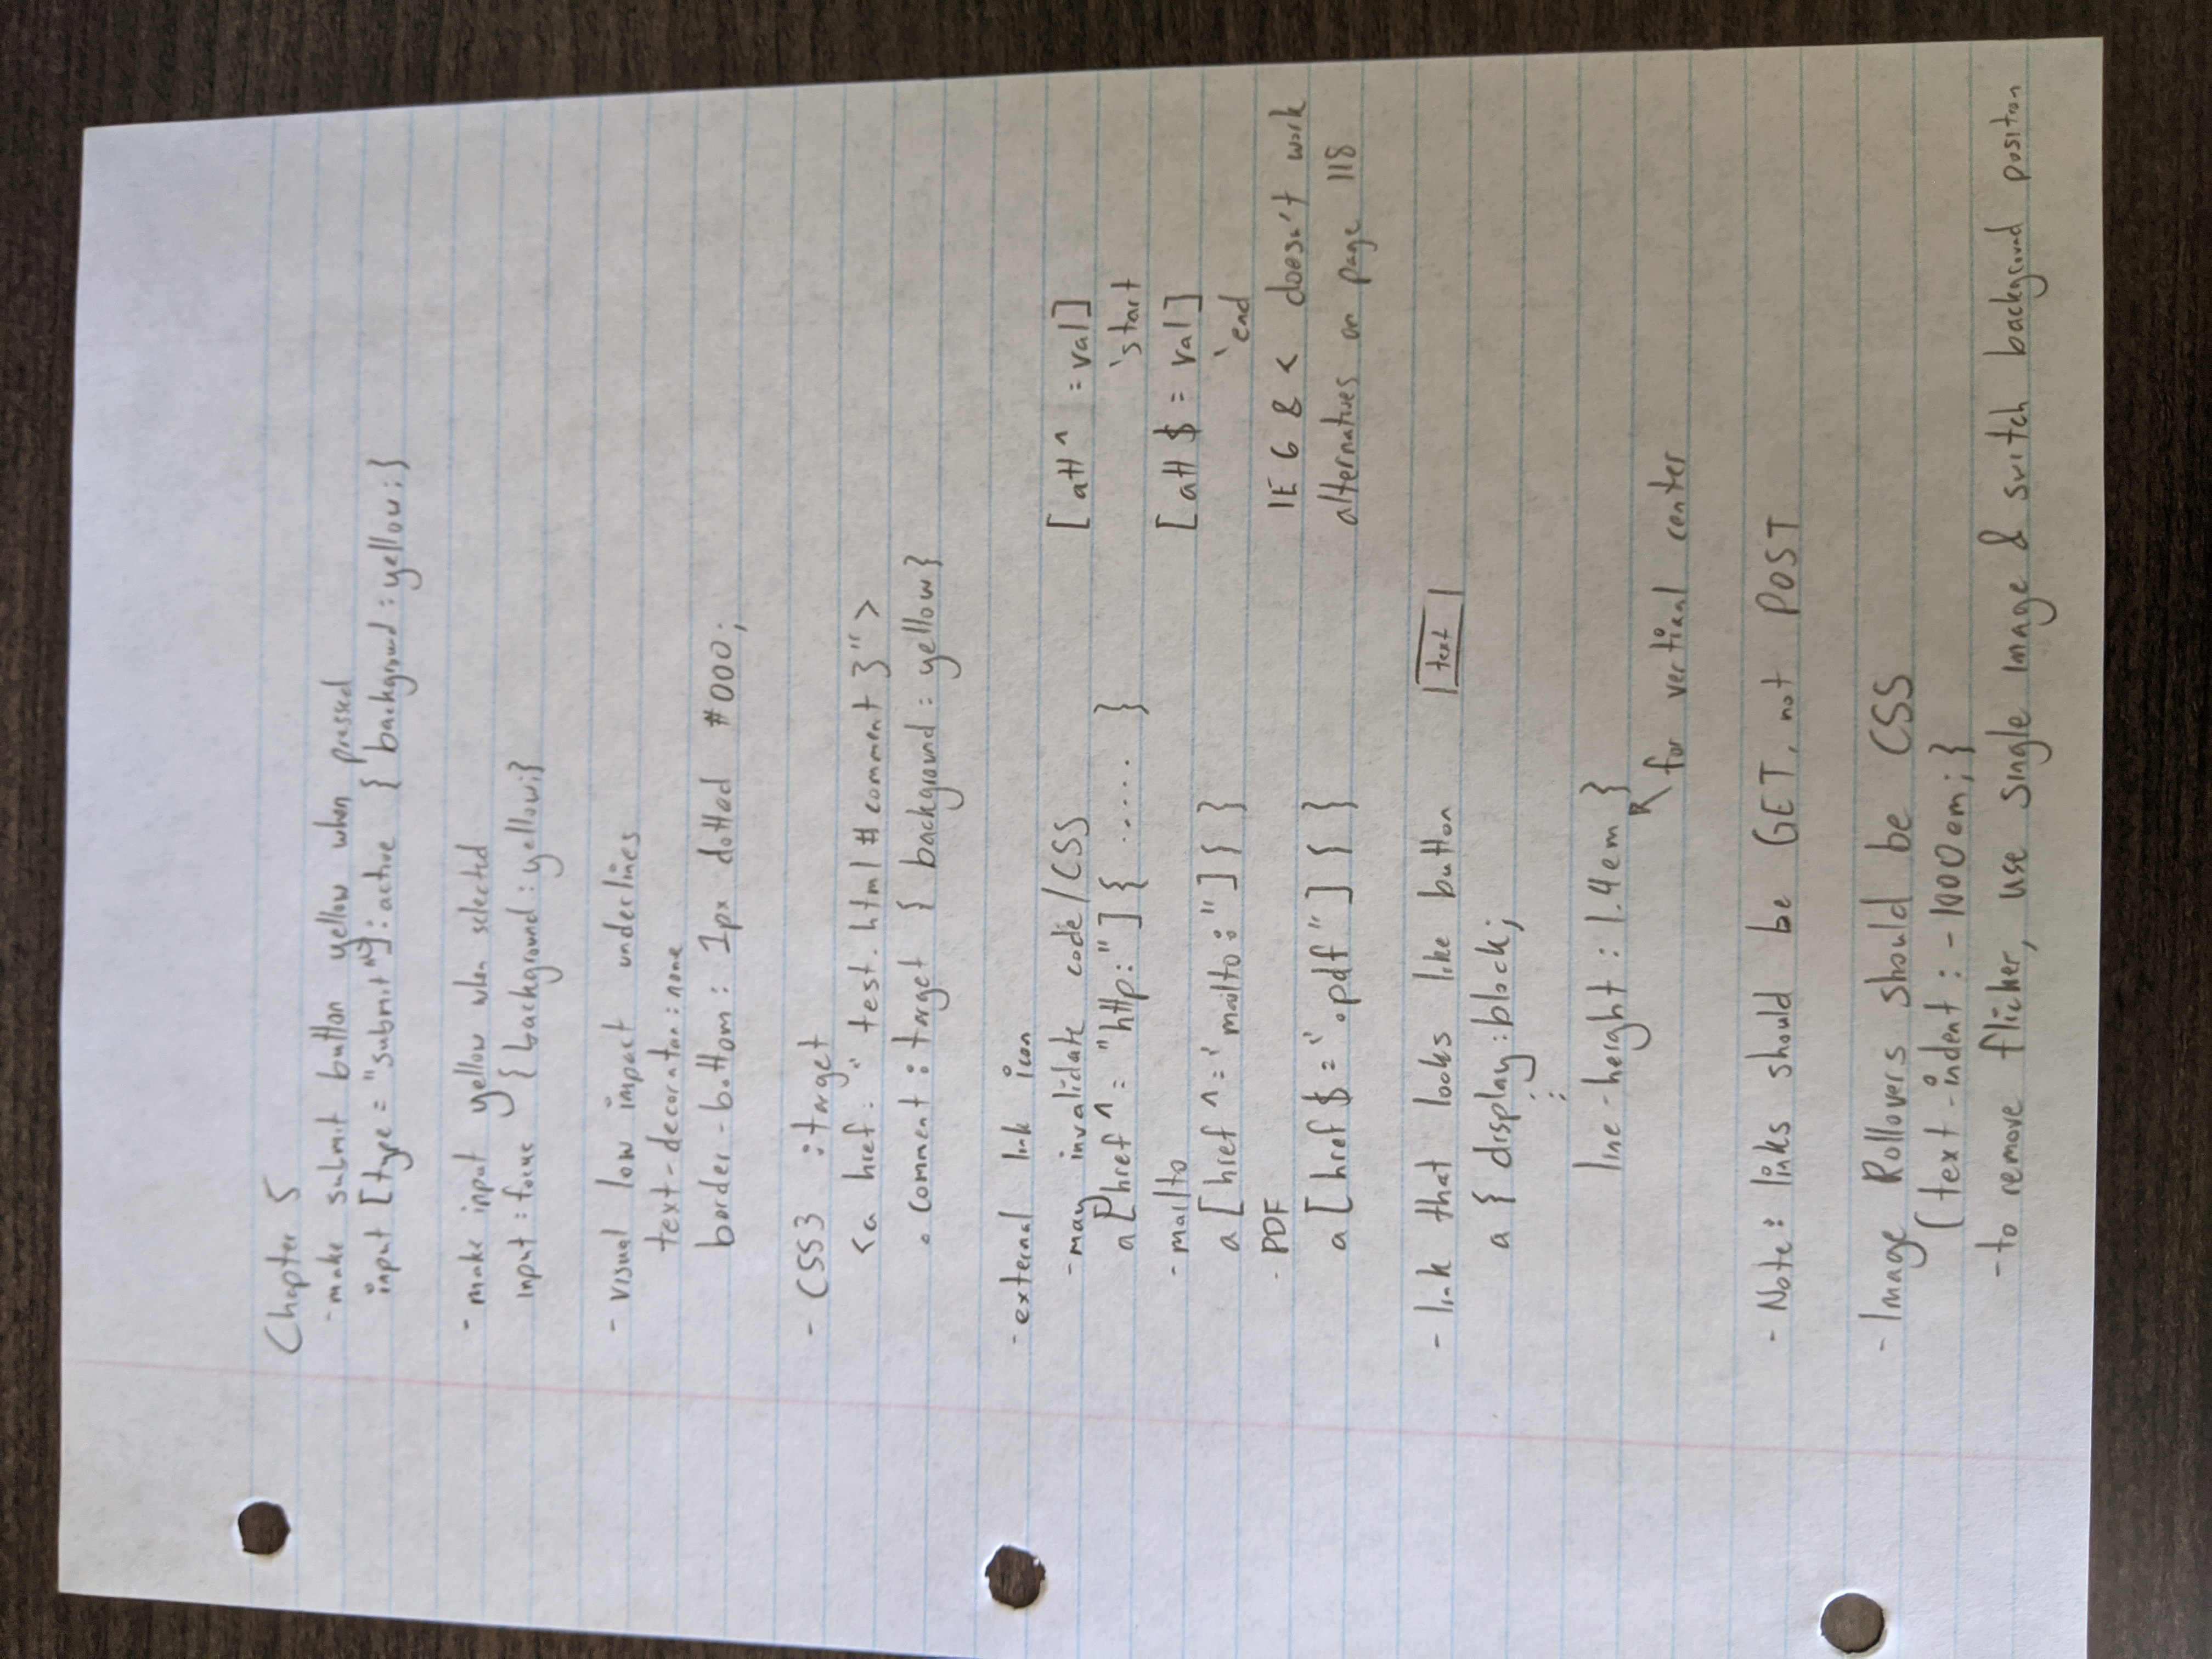 Chapter 5
- make submit button yellow when pressed
input [type = "submit"]:active { background : yellow; }
- make input yellow when selected
input : focus { background : yellow;}
- visual low impact underlines
text-decoration : none
border-bottom : 1px dotted #000;
- CSS3 :target
<a href = " test.html # comment 3">
.comment : target { background : yellow }
- external link icon
- may invalidate code/CSS
a [href ^ = "http:"] { ..... }
- mailto
a [href ^ = 'mailto:"] { }
- PDF
a [href $ = '.pdf"] { }
[att ^ = val]
'start
[att $ = val]
'end
IE 6 & < doesn't work
alternatives on page 118
- link that looks like button |text|
a { display : block;
:
line-height : 1.4em }
for vertical center
- Note: links should be GET, not POST
- Image Rollovers should be CSS
(text-indent : -1000em; }
- to remove flicker, use single image & switch background position